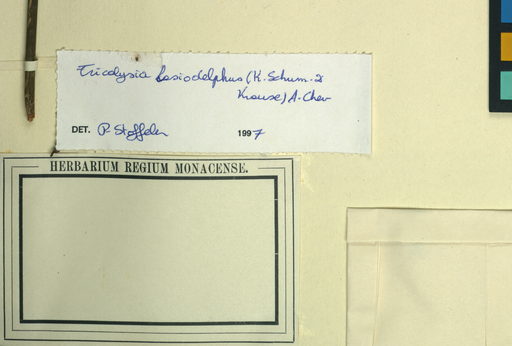 Tricalysia lasiodelphus (K. Schum. &
Krause) A. Chev
DET. P. Stoffelen 1997
HERBARIUM REGIUM MONACENSE.